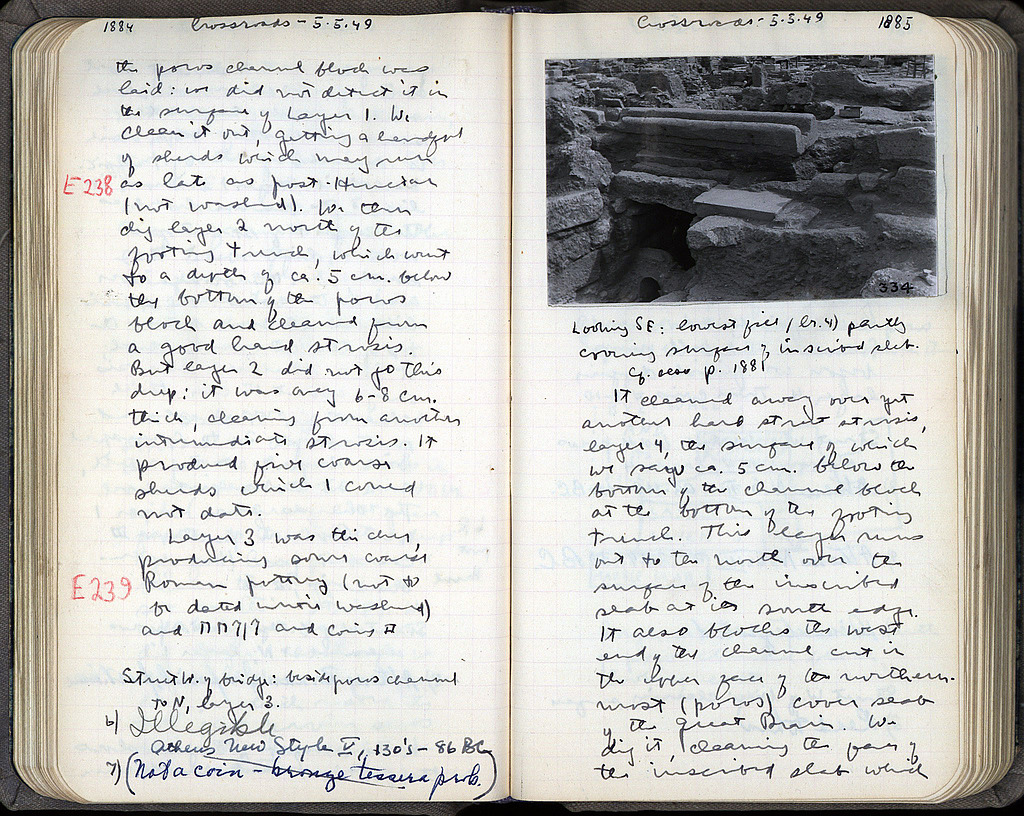 1884 Crossroads - 5.5.49
the poros channel block was
laid: we did not detect it in
the surface of Layer 1. We
clean it out, getting a handful
of sherds which may run
E 238 as late as post-Hruclar
(not washed). We then
dig layer 2 north of the
footing trench, which went
to a depth of ca. 5 cm. below
the bottom of the poros
block and cleaned from
a good hard strosis.
But layer 2 did not go this
deep: it was only 6-8 cm.
thick, cleaning from another
intermediate strosis. It
produced five coarse
sherds which I could
not date.
Layer 3 was thicker,
producing some coarse
E 239 Roman pottery (not to
be dated until washed)
and ΠΠ 7/7 and coins
Street W. of bridge: beside poros channel
to N, layer 3.
6) Illegible
Athens New Style II, 130's - 86 BC
7) (Not a coin - bronze tessera prob.)
Crossroads - 5.5.49 1885
334
Looking SE: lowest fill (lr. 4) partly
covering surface of inscribed slab.
Cf. also p. 1881
It cleaned away over yet
another hard street strosis,
layer 4, the surface of which
we say ca. 5 cm. below the
bottom of the channel block
at the bottom of the footing
trench. This layer runs
out to the north over the
surface of the inscribed
slab at its south edge.
It also blocks the west
end of the channel cut in
the upper face of the northern-
most (poros) cover slab
of the great Drain. We
dig it, cleaning the face of
the inscribed slab which